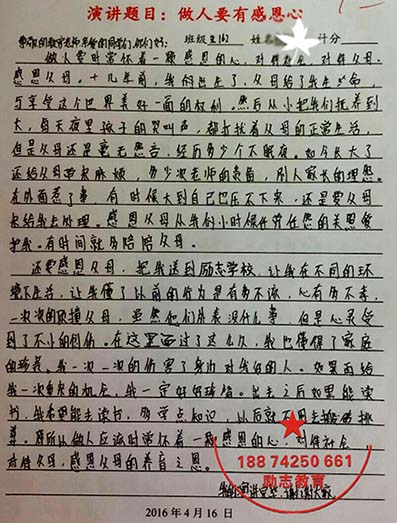 演讲题目：做人要有感恩心
尊敬的教官老师亲爱的同学们，你们好： 班级 姓名 计分
做人要时常怀着一颗感恩的心，对待社会，对待父母。
感恩父母。十几年前，我们出生了，父母给了我生命，
与享受这个世界美好一面的权利。然后从小把我们抚养到
大，每天夜里孩子的哭叫声，都打扰着父母的正常生活，
但是父母还是毫无怨言，经历多少个不眠夜。如今长大了
还给父母带来麻烦，多少次老师的责备，别人家长的埋怨。
在外面惹了事，有时候大到自己也压不下来，还是要父母
来给我去处理。感恩父母从我们小时候件劳任怨的关恩爱
护我。有时间就多陪陪父母。
还要感恩父母，把我送到励志学校，让我在不同的环
境下生活，让我懂了以前的行为是有多不该，心有多不孝，
一次次的顶撞父母，虽然他们外表没什么事，但是心灵受
到了不小的创伤。在这里面过了这么久，我也懂得了家庭
的珍贵。我一次一次的伤害了身边对我好的人。如果再给
我一次重来的机会，我一定好好珍惜。出去之后如果能读
书，我希望能去读书，多学点知识，以后就不用去搬砖挑
草。所以做人应该时常怀着一颗感恩的心，对待社会
对待父母，感恩父母的养育之恩。
我的演讲完毕，谢谢大家
188 74250 661
励志教育
2016 年 4 月 16 日